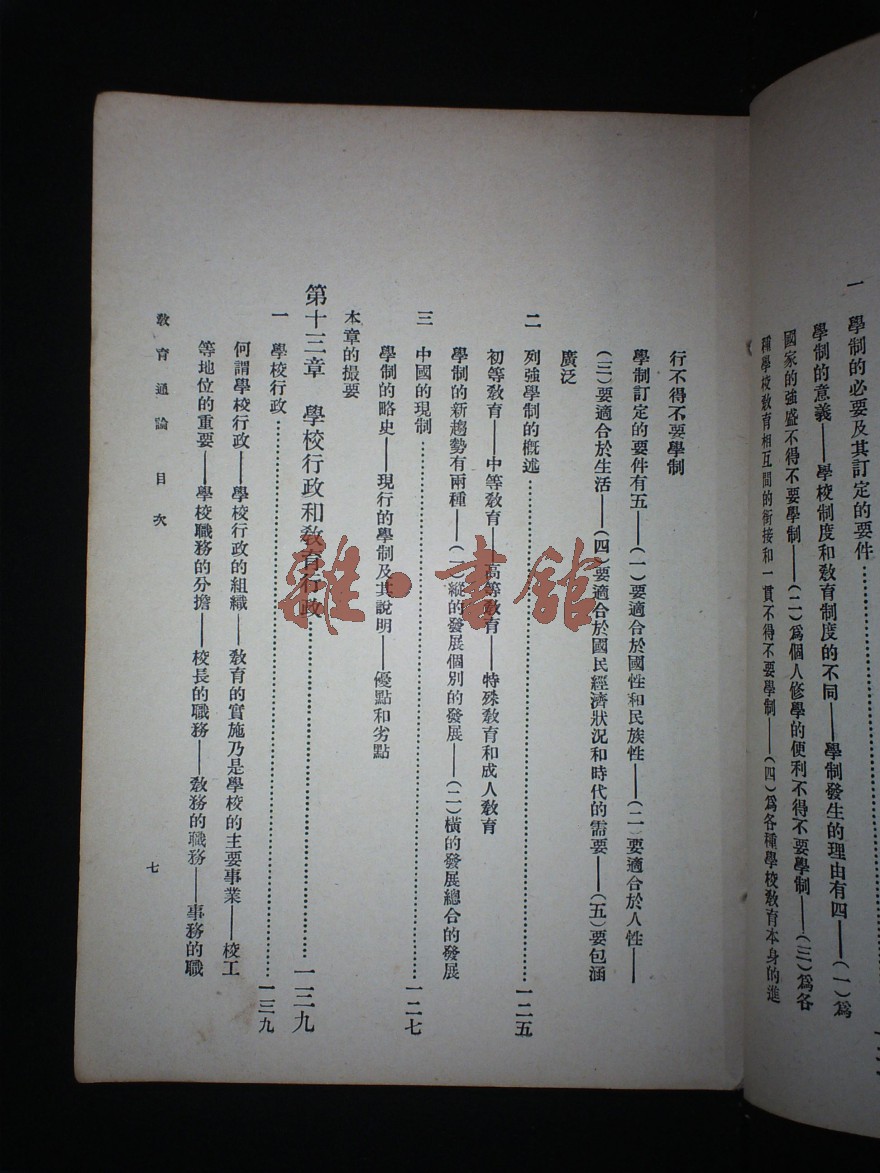 一 學制的必要及其訂定的要件……………
學制的意義——學校制度和敎育制度的不同——學制發生的理由有四——(一)爲
國家的強盛不得不要學制——(二)爲個人修學的便利不得不要學制——(三)爲各
種學校敎育相互間的銜接和一貫不得不要學制——(四)爲各種學校敎育本身的進
行不得不要學制
學制訂定的要件有五——(一)要適合於國性和民族性——(二)要適合於人性——
(三)要適合於生活——(四)要適合於國民經濟狀況和時代的需要——(五)要包涵
廣泛
二 列強學制的槪述……………一二五
初等敎育——中等敎育——高等敎育——特殊敎育和成人敎育
學制的新趨勢有兩種——(一)縱的發展個別的發展——(二)橫的發展總合的發展
三 中國的現制……………一二七
學制的略史——現行的學制及其說明——優點和劣點
本章的撮要
第十三章 學校行政和敎育行政……………一三九
一 學校行政……………一三九
何謂學校行政——學校行政的組織——敎育的實施乃是學校的主要事業——校工
等地位的重要——學校職務的分擔——校長的職務——敎務的職務——事務的職
敎育通論 目次
七
雜·書館